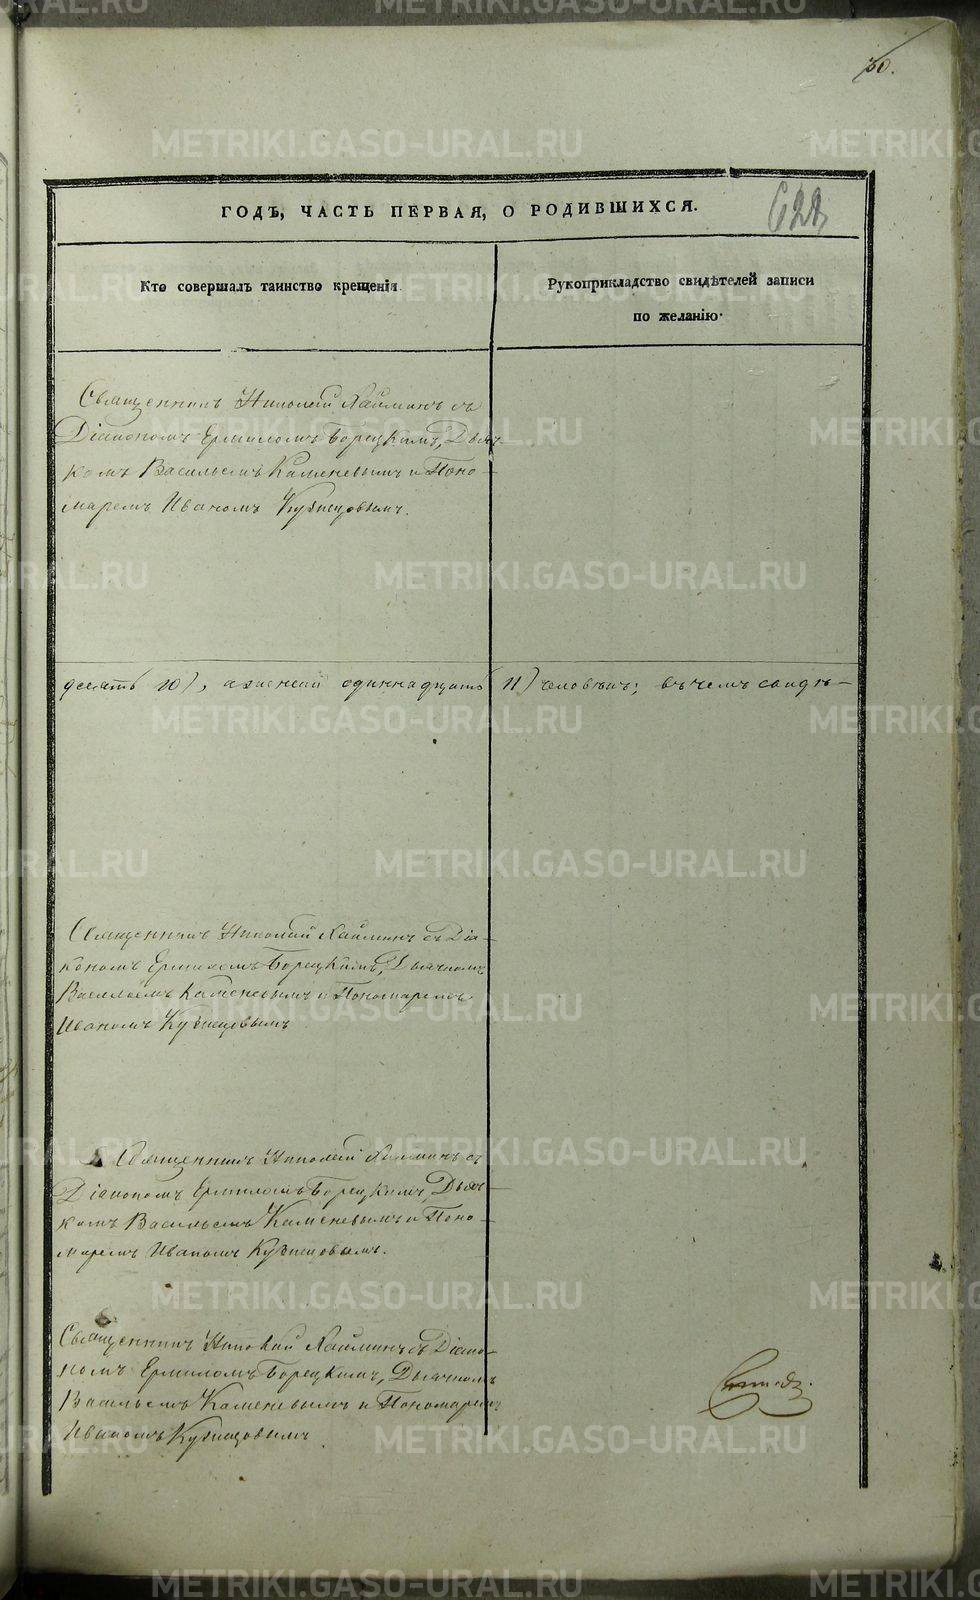 60.
622
ГОДЪ, ЧАСТЬ ПЕРВАЯ, О РОДИВШИХСЯ.
Кто совершалъ таинство крещенія.
Рукоприкладство свидѣтелей записи
по желанію.
Священникъ Николай Хайминъ съ
Діакономъ Ермиломъ Борецкимъ, Дьяч-
комъ Васильемъ Каменевымъ и Поно-
маремъ Иваномъ Кузнецовымъ.
десять 10), а женска одиннадцать 11) человѣкъ; въ чемъ свидѣ-
Священникъ Николай Хайминъ съ Діа-
кономъ Ермиломъ Борецкимъ, Дьячкомъ
Васильемъ Каменевымъ и Пономаремъ
Иваномъ Кузнецовымъ
Священникъ Николай Хайминъ съ
Діакономъ Ермиломъ Борецкимъ, Дьяч-
комъ Васильемъ Каменевымъ и Поно-
маремъ Иваномъ Кузнецовымъ.
Священникъ Николай Хайминъ съ Діако-
номъ Ермиломъ Борецкимъ, Дьячкомъ
Васильемъ Каменевымъ и Пономаремъ
Иваномъ Кузнецовымъ
METRIKI.GASO-URAL.RU